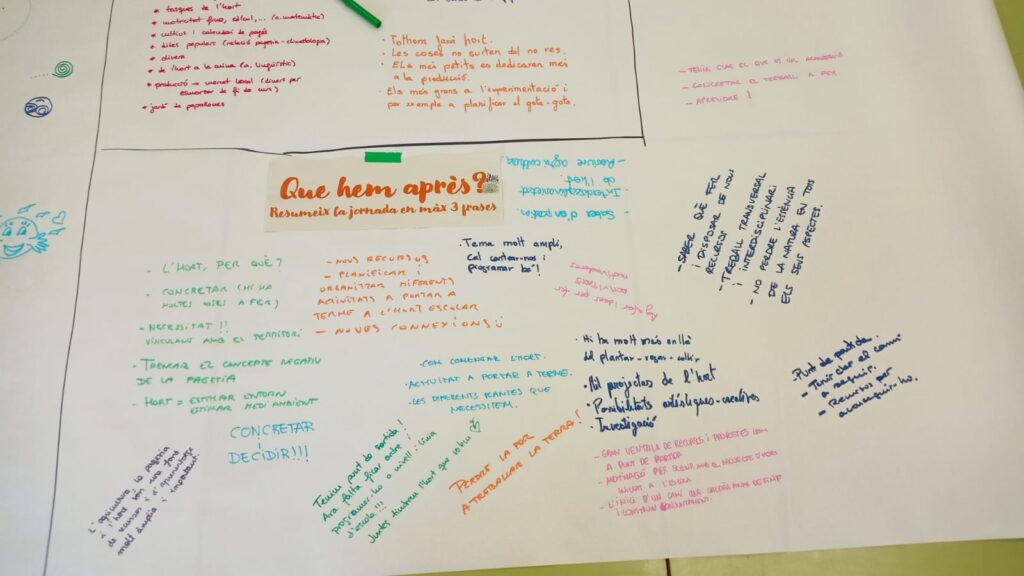 * tasques de l'hort
* motricitat fina, càlcul,... (a. matemàtic)
* cultius i calendari de pagès
* dites populars (relació pagesia-climatologia)
* divers
* de l'hort a la cuina (a. lingüístic)
* producció → mercat local (diners per
de fi de curs)
* jardí de papallones
· Tothom farà hort.
· Les coses no surten del no res.
· Els més petits es dedicaran més
a la producció.
· Els més grans a l'experimentació i
per exemple a planificar el gota-gota.
- TENIR CLAR EL QUE ÉS UN
- CONCRETAR EL TREBALL A FER
- APRENDRE!
Que hem après?
Resumeix la jornada en màx 3 frases
- Saber d'on partim
- Interdisciplinarietat
de l'hort.
- agricultura
- SABER QUÈ FER
I DISPOSAR DE NOUS
RECURSOS
- TREBALL TRANSVERSAL
I INTERDISCIPLINARI
- NO PERDRE L'ESSÈNCIA
DE LA NATURA EN TOTS
ELS SEUS ASPECTES.
- L'HORT, PER QUÈ?
- CONCRETAR (HI HA
MOLTES COSES A FER)
- NECESSITAT!!
VINCULANT AMB EL TERRITORI
- TRENCAR EL CONCEPTE NEGATIU
DE LA PAGESIA
- HORT = ESTIMAR ENTORN
ESTIMAR MEDI AMBIENT
- NOUS RECURSOS
- PLANIFICAR I
ORGANITZAR DIFERENTS
ACTIVITATS A PORTAR A
TERME A L'HORT ESCOLAR
- NOVES CONNEXIONS
· Tema molt ampli,
cal centrar-nos i
programar bé!
Agafar idees per fer
activitats
· COM COMENÇAR L'HORT.
· ACTIVITAT A PORTAR A TERME.
· LES DIFERENTS PLANTES QUE
NECESSITEM.
· Hi ha molt més enllà
del plantar-regar-collir
· Mil projectes de l'hort
· Possibilitats artístiques-creatives
· Investigació
- Punt de partida.
- Tenir clar el camí
a seguir.
- Recursos per
aconseguir-ho.
CONCRETAR
I
DECIDIR!!!
L'agricultura, la pagesia
i l'hort són una font
de recursos i d'aprenentatge
molt àmplia i important.
Tenim punt de partida!
Ara falta ficar ordre i
programar-ho a nivell
d'escola!!!
Juntes tindrem l'hort que volem
PERDRE LA POR
A TREBALLAR LA TERRA!
- GRAN VENTALL DE RECURSOS I PROPOSTES COM
A PUNT DE PARTIDA
- MOTIVACIÓ PER SEGUIR AMB EL PROJECTE D'HORT
A L'ESCOLA
- L'INICI D'UN CAMÍ QUE CALDRÀ ANAR DEFININT
I CONSTRUIR CONJUNTAMENT.